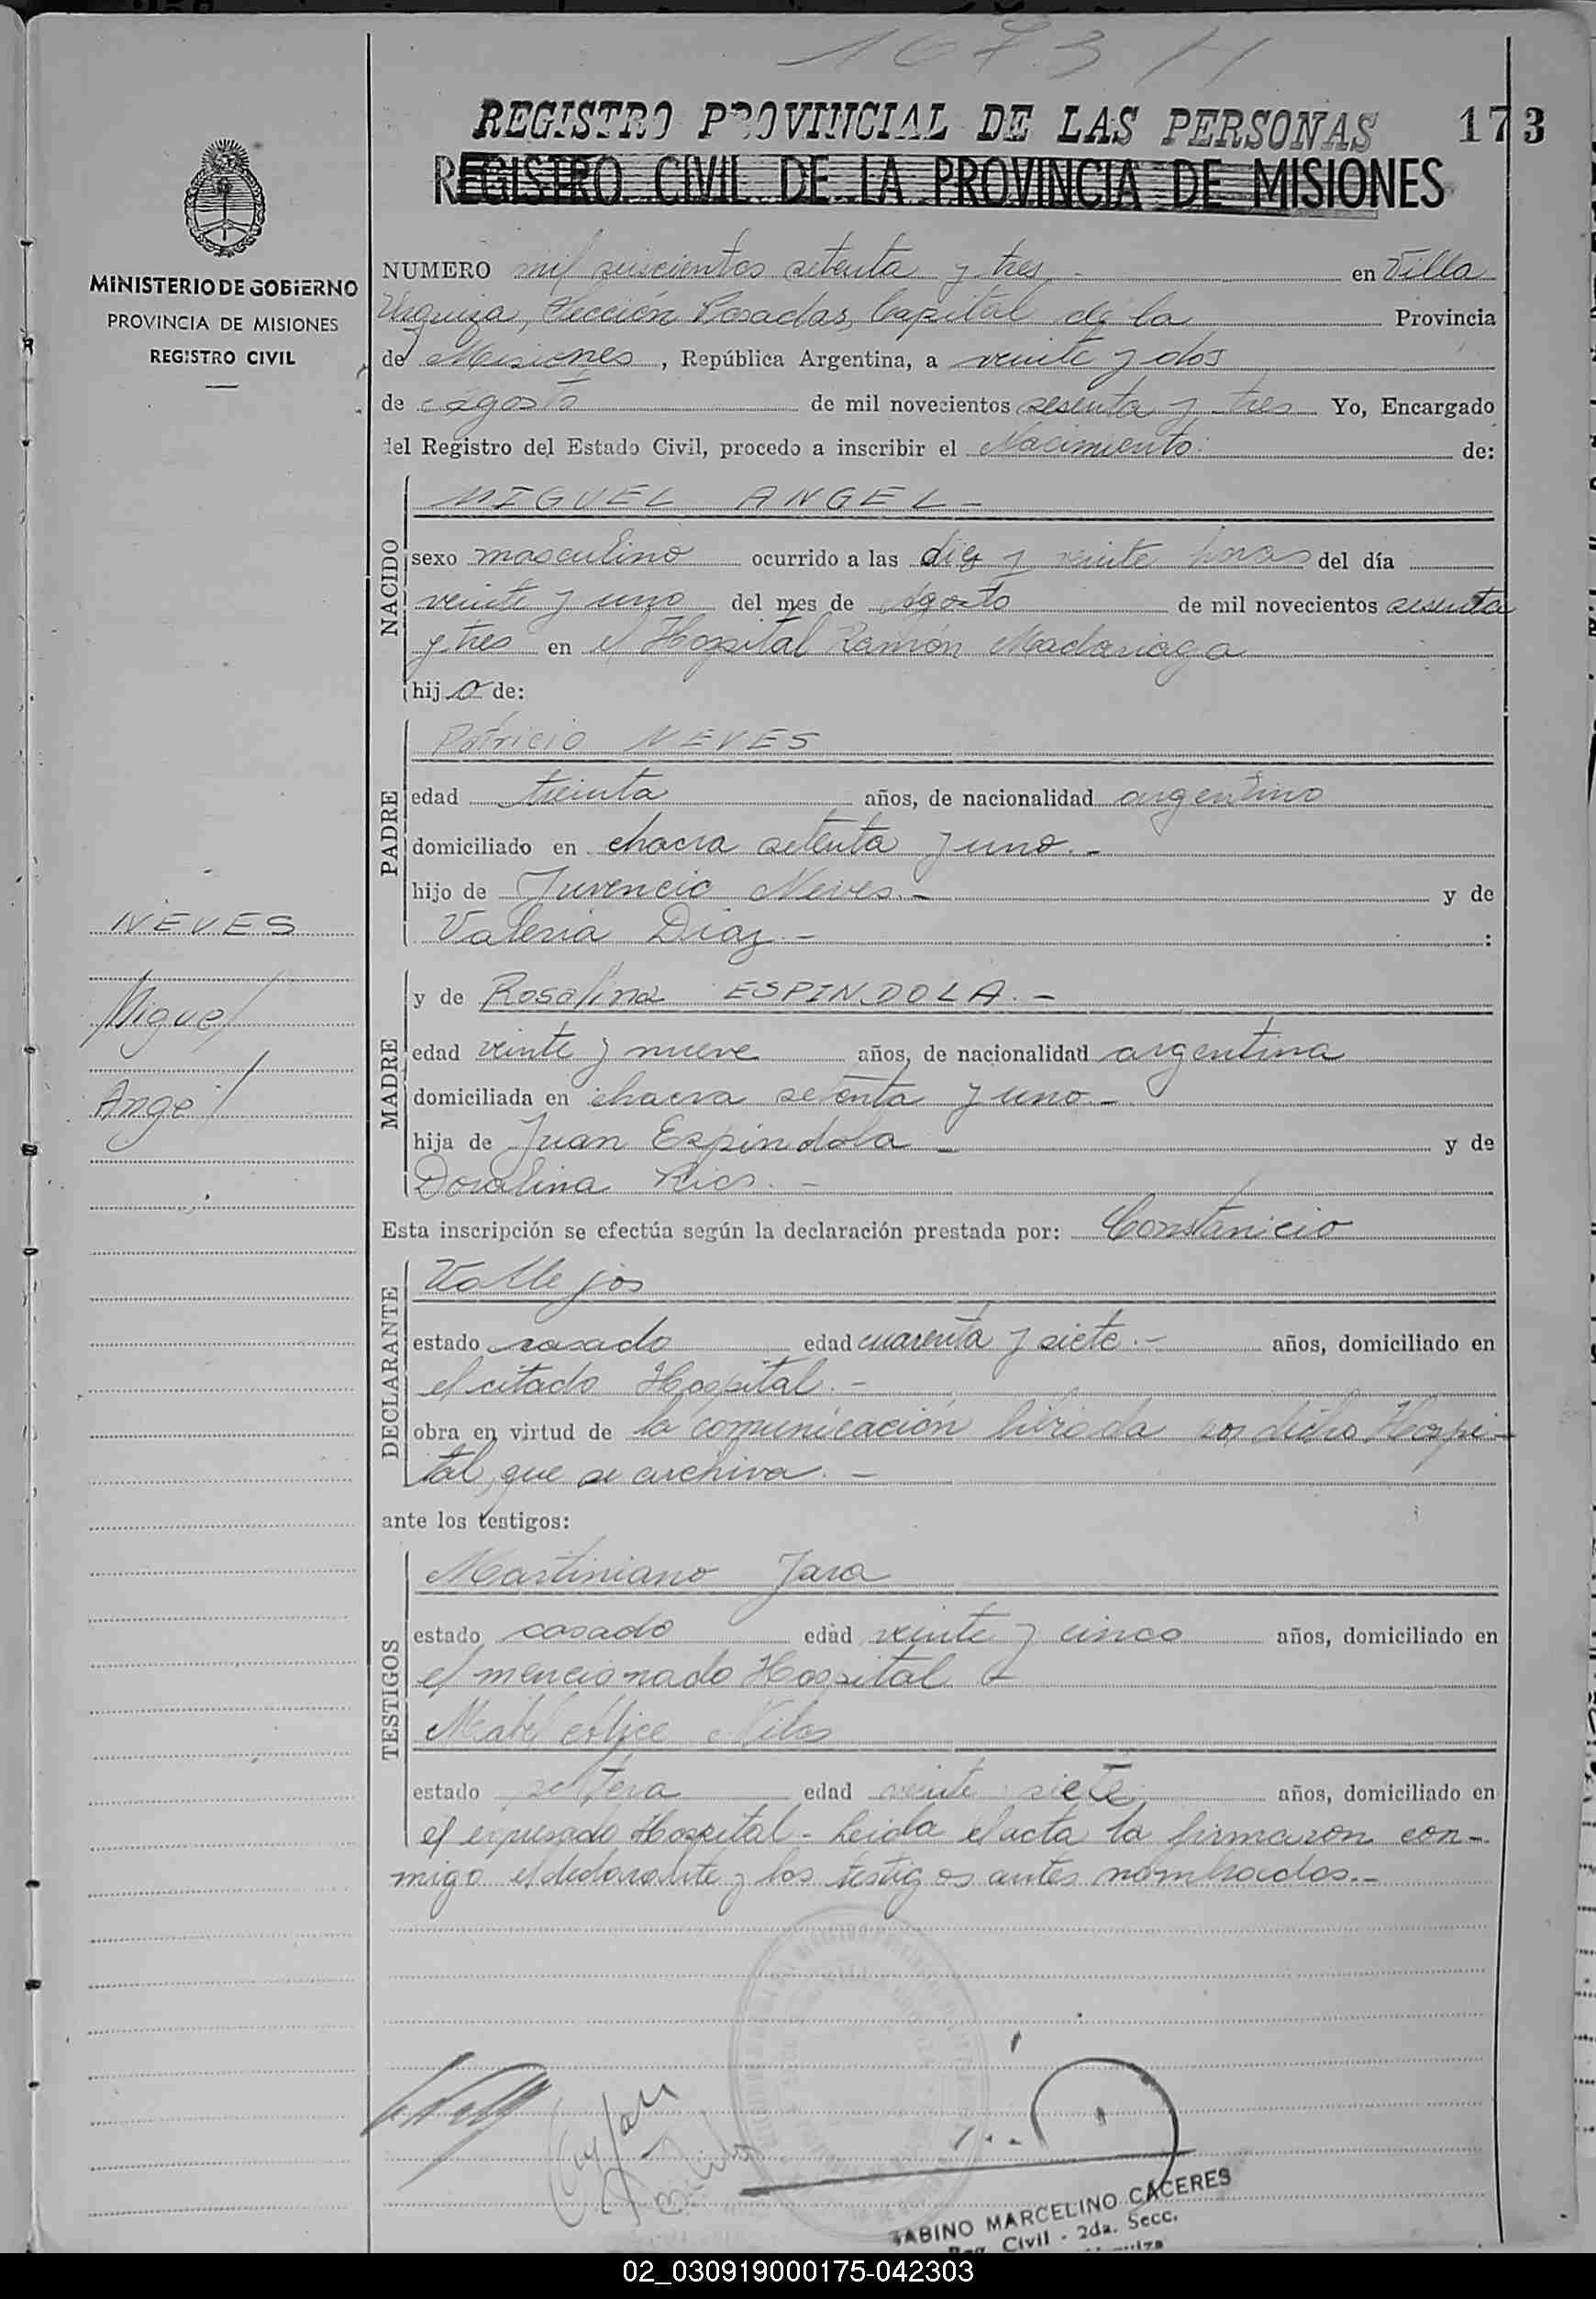 1673 H
REGISTRO PROVINCIAL DE LAS PERSONAS 173
REGISTRO CIVIL DE LA PROVINCIA DE MISIONES
MINISTERIO DE GOBIERNO
PROVINCIA DE MISIONES
REGISTRO CIVIL
NUMERO mil seiscientos setenta y tres - en Villa
Urquiza, Sección Posadas, Capital de la Provincia
de Misiones, República Argentina, a veinte y dos
de agosto de mil novecientos sesenta y tres Yo, Encargado
del Registro del Estado Civil, procedo a inscribir el Nacimiento. de:
NACIDO
MIGUEL ANGEL -
sexo masculino ocurrido a las diez y veinte horas del día
veinte y uno del mes de agosto de mil novecientos sesenta
y tres en el Hospital Ramón Madariaga
hijo de:
PADRE
Patricio NEVES
edad treinta años, de nacionalidad argentino
domiciliado en chacra setenta y uno. -
hijo de Juvencio Neves. - y de
Valeria Diaz - :
NEVES
Miguel
Angel
MADRE
y de Rosalina ESPINDOLA. -
edad veinte y nueve años, de nacionalidad argentina
domiciliada en chacra setenta y uno. -
hija de Juan Espindola - y de
Doralina Rios. -
Esta inscripción se efectúa según la declaración prestada por: Constanicio
DECLARANTE
Vallejos
estado casado edad cuarenta y siete. - años, domiciliado en
el citado Hospital. -
obra en virtud de la comunicación librada por dicho Hospi-
tal, que se archiva. -
ante los testigos:
TESTIGOS
Martiniano Jara
estado casado edad veinte y cinco años, domiciliado en
el mencionado Hospital -
Mabel Alice
estado soltera edad veinte siete años, domiciliado en
el expresado Hospital - Leida el acta la firmaron con-
migo el declarante y los testigos antes nombrados. -
SABINO MARCELINO CACERES
Reg. Civil - 2da. Secc.
02_030919000175-042303